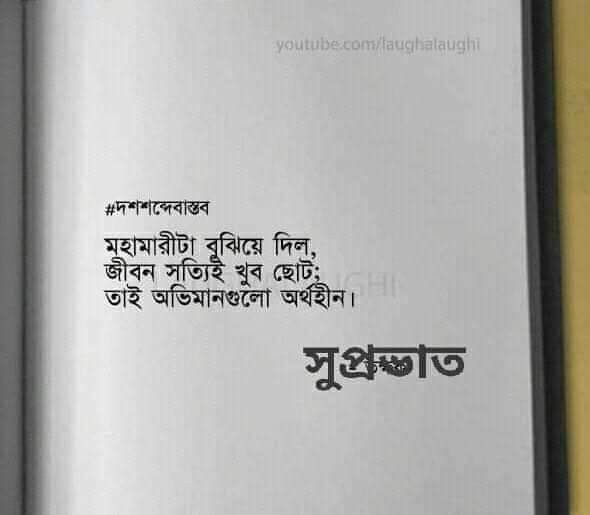 youtube.com/laughalaughi
#দশশব্দেবাস্তব
মহামারীটা বুঝিয়ে দিল,
জীবন সত্যিই খুব ছোট;
তাই অভিমানগুলো অর্থহীন।
সুপ্রভাত